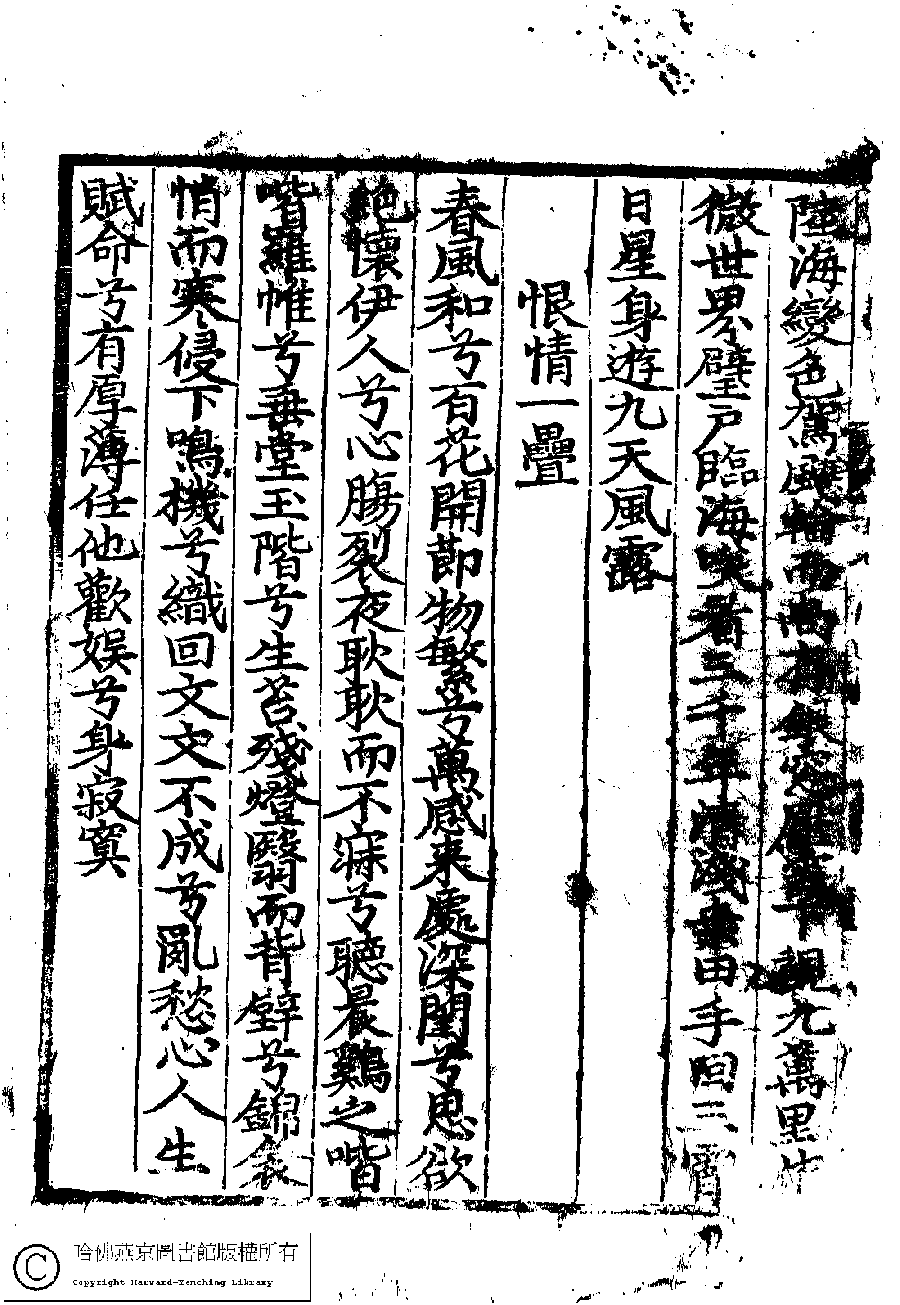 陸海變色駕風輪而尚銀窓壓霞下視九萬里
微世界璧戶臨海笑看三千年淸淺桑田手回三霄
日星身遊九天風露
恨情一疊
春風和兮百花開節物繁兮萬感来處深閨兮思欲
絶懷伊人兮心膓裂夜耿耿而不寐兮聽晨鷄之喈
喈羅帷兮垂堂玉階兮生苔殘燈翳而背壁兮錦衾
悄而寒侵下鳴機兮織回文文不成兮亂愁心人生
賦命兮有厚薄任他歡娛兮身寂寞
哈佛燕京圖書館版權所有
Copyright Harvard-Yenching Library